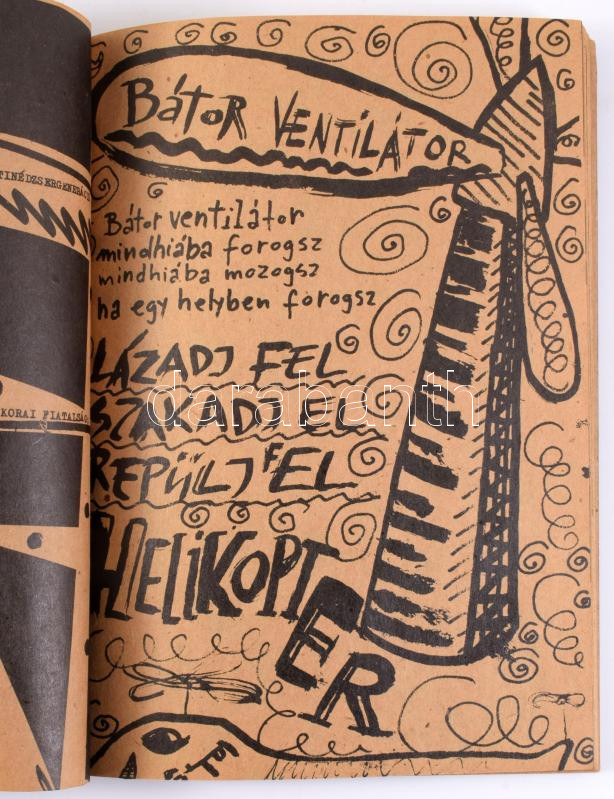 TINÉDZSERGENERÁC
KORAI FIATALSÁG
BÁTOR VENTILÁTOR
Bátor ventilátor
mindhiába forogsz
mindhiába mozogsz
ha egy helyben forogsz
LÁZADJ FEL
SZAKADJ EL
REPÜLJ FEL
HELIKOPTER
darabanth